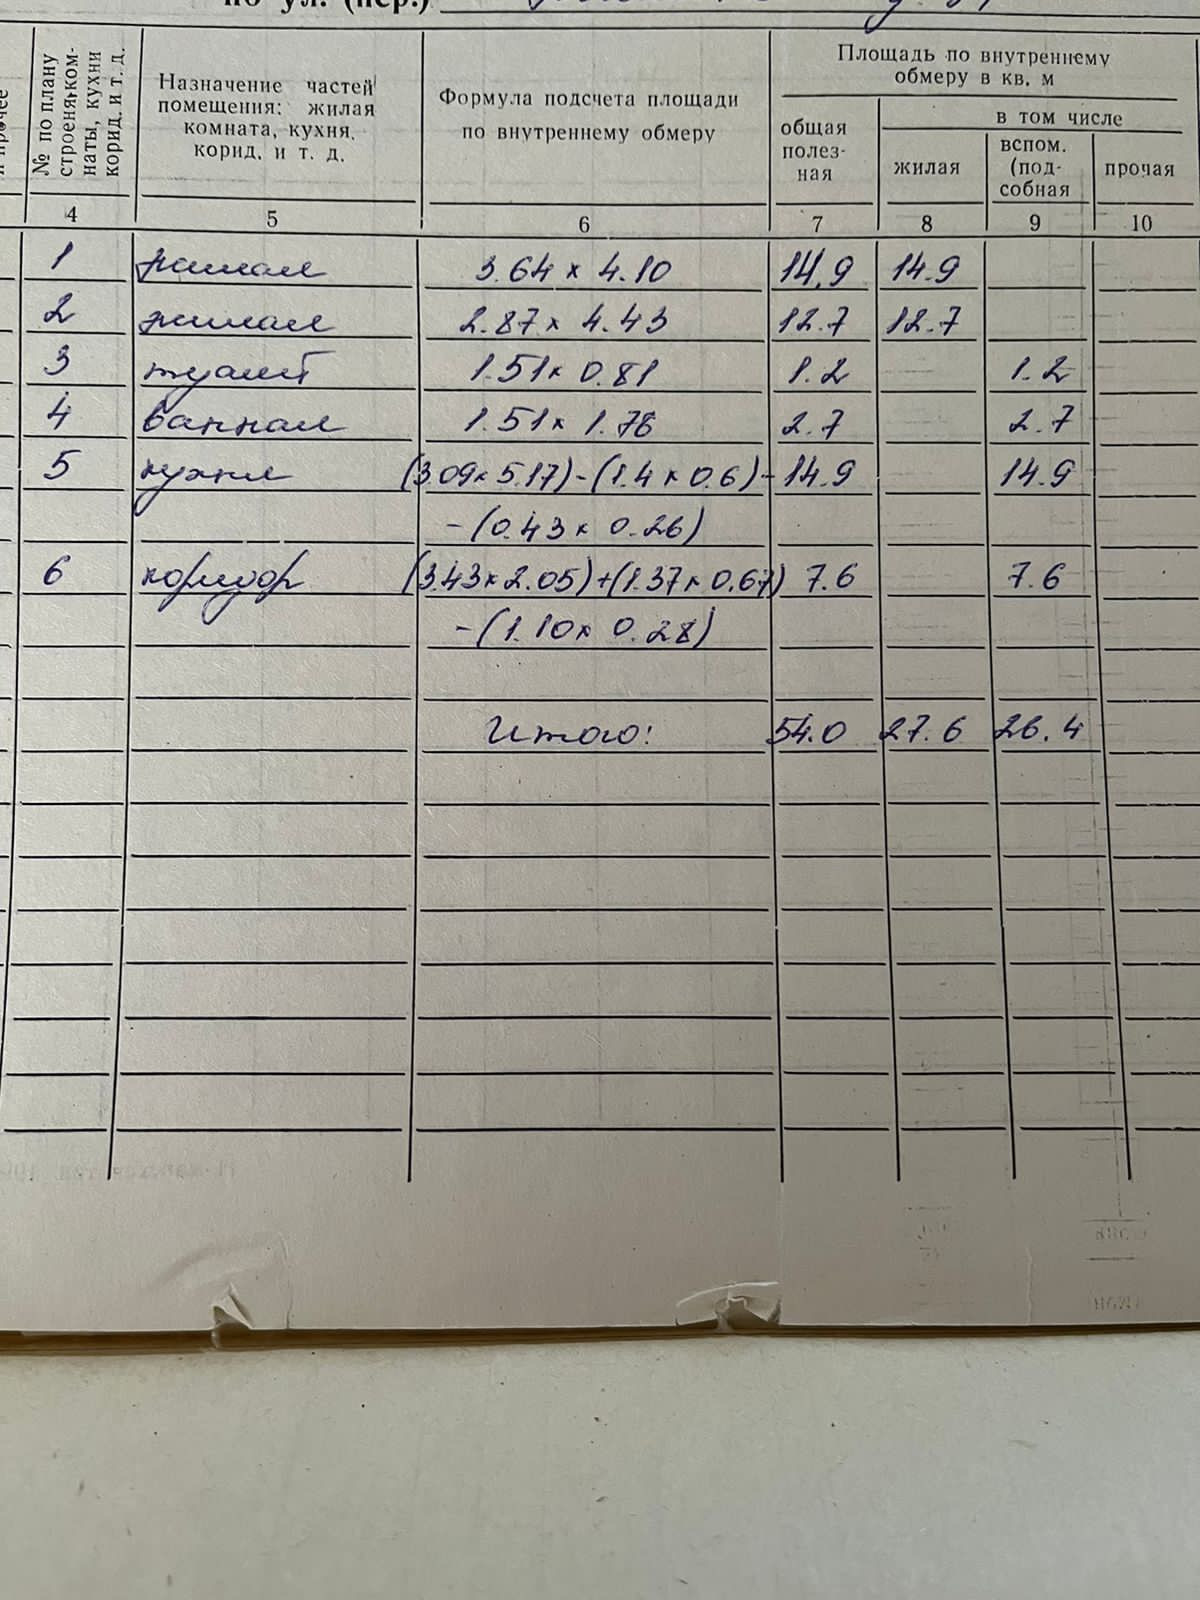 по ул. (пер.)
№ по плану строения, комнаты, кухни корид. и т. д.
Назначение частей
помещения: жилая
комната, кухня,
корид. и т. д.
Формула подсчета площади
по внутреннему обмеру
Площадь по внутреннему
обмеру в кв. м
общая
полез-
ная
в том числе
жилая
вспом.
(под-
собная
прочая
4 5 6 7 8 9 10
1 жилая 3.64 x 4.10 14,9 14.9
2 жилая 2.87 x 4.43 12.7 12.7
3 туалет 1.51 x 0.81 1.2 1.2
4 ванная 1.51 x 1.76 2.7 2.7
5 кухня (3.09 x 5.17) - (1.4 x 0.6) - 14.9 14.9
- (0.43 x 0.26)
6 коридор (3.43 x 2.05) + (1.37 x 0.67) 7.6 7.6
- (1.10 x 0.28)
Итого: 54.0 27.6 26.4